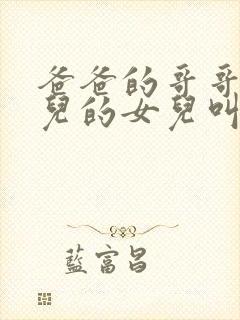 爸爸的哥哥
兒的女兒叫
藍富昌